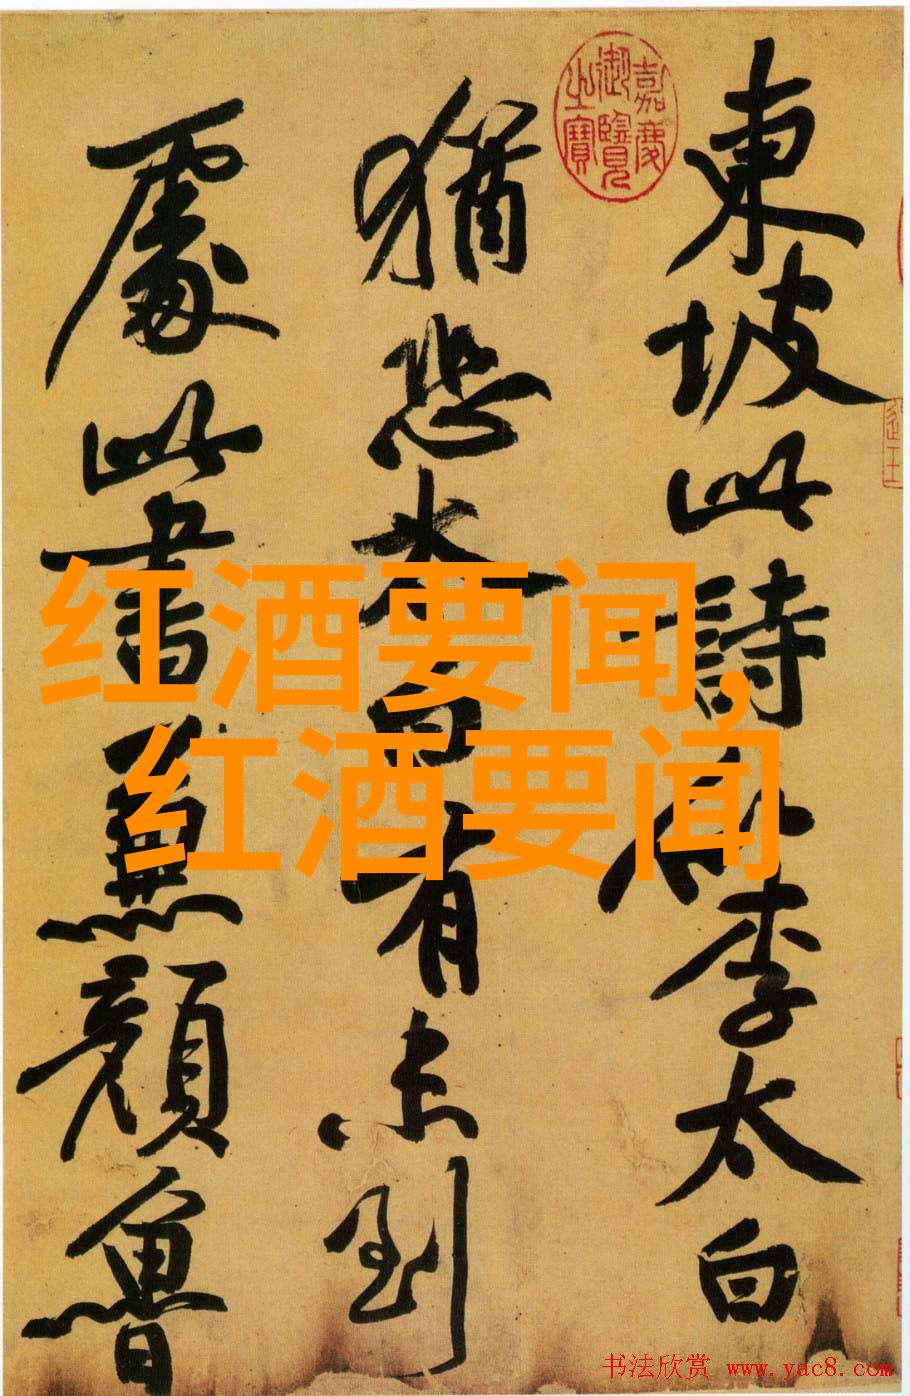 東坡此詩似李太白
猶恐太白有未到
處此書兼顏魯
嘉慶
御覽
之寶
红酒要闻,
红酒要闻
书法欣赏 www.yac8.com